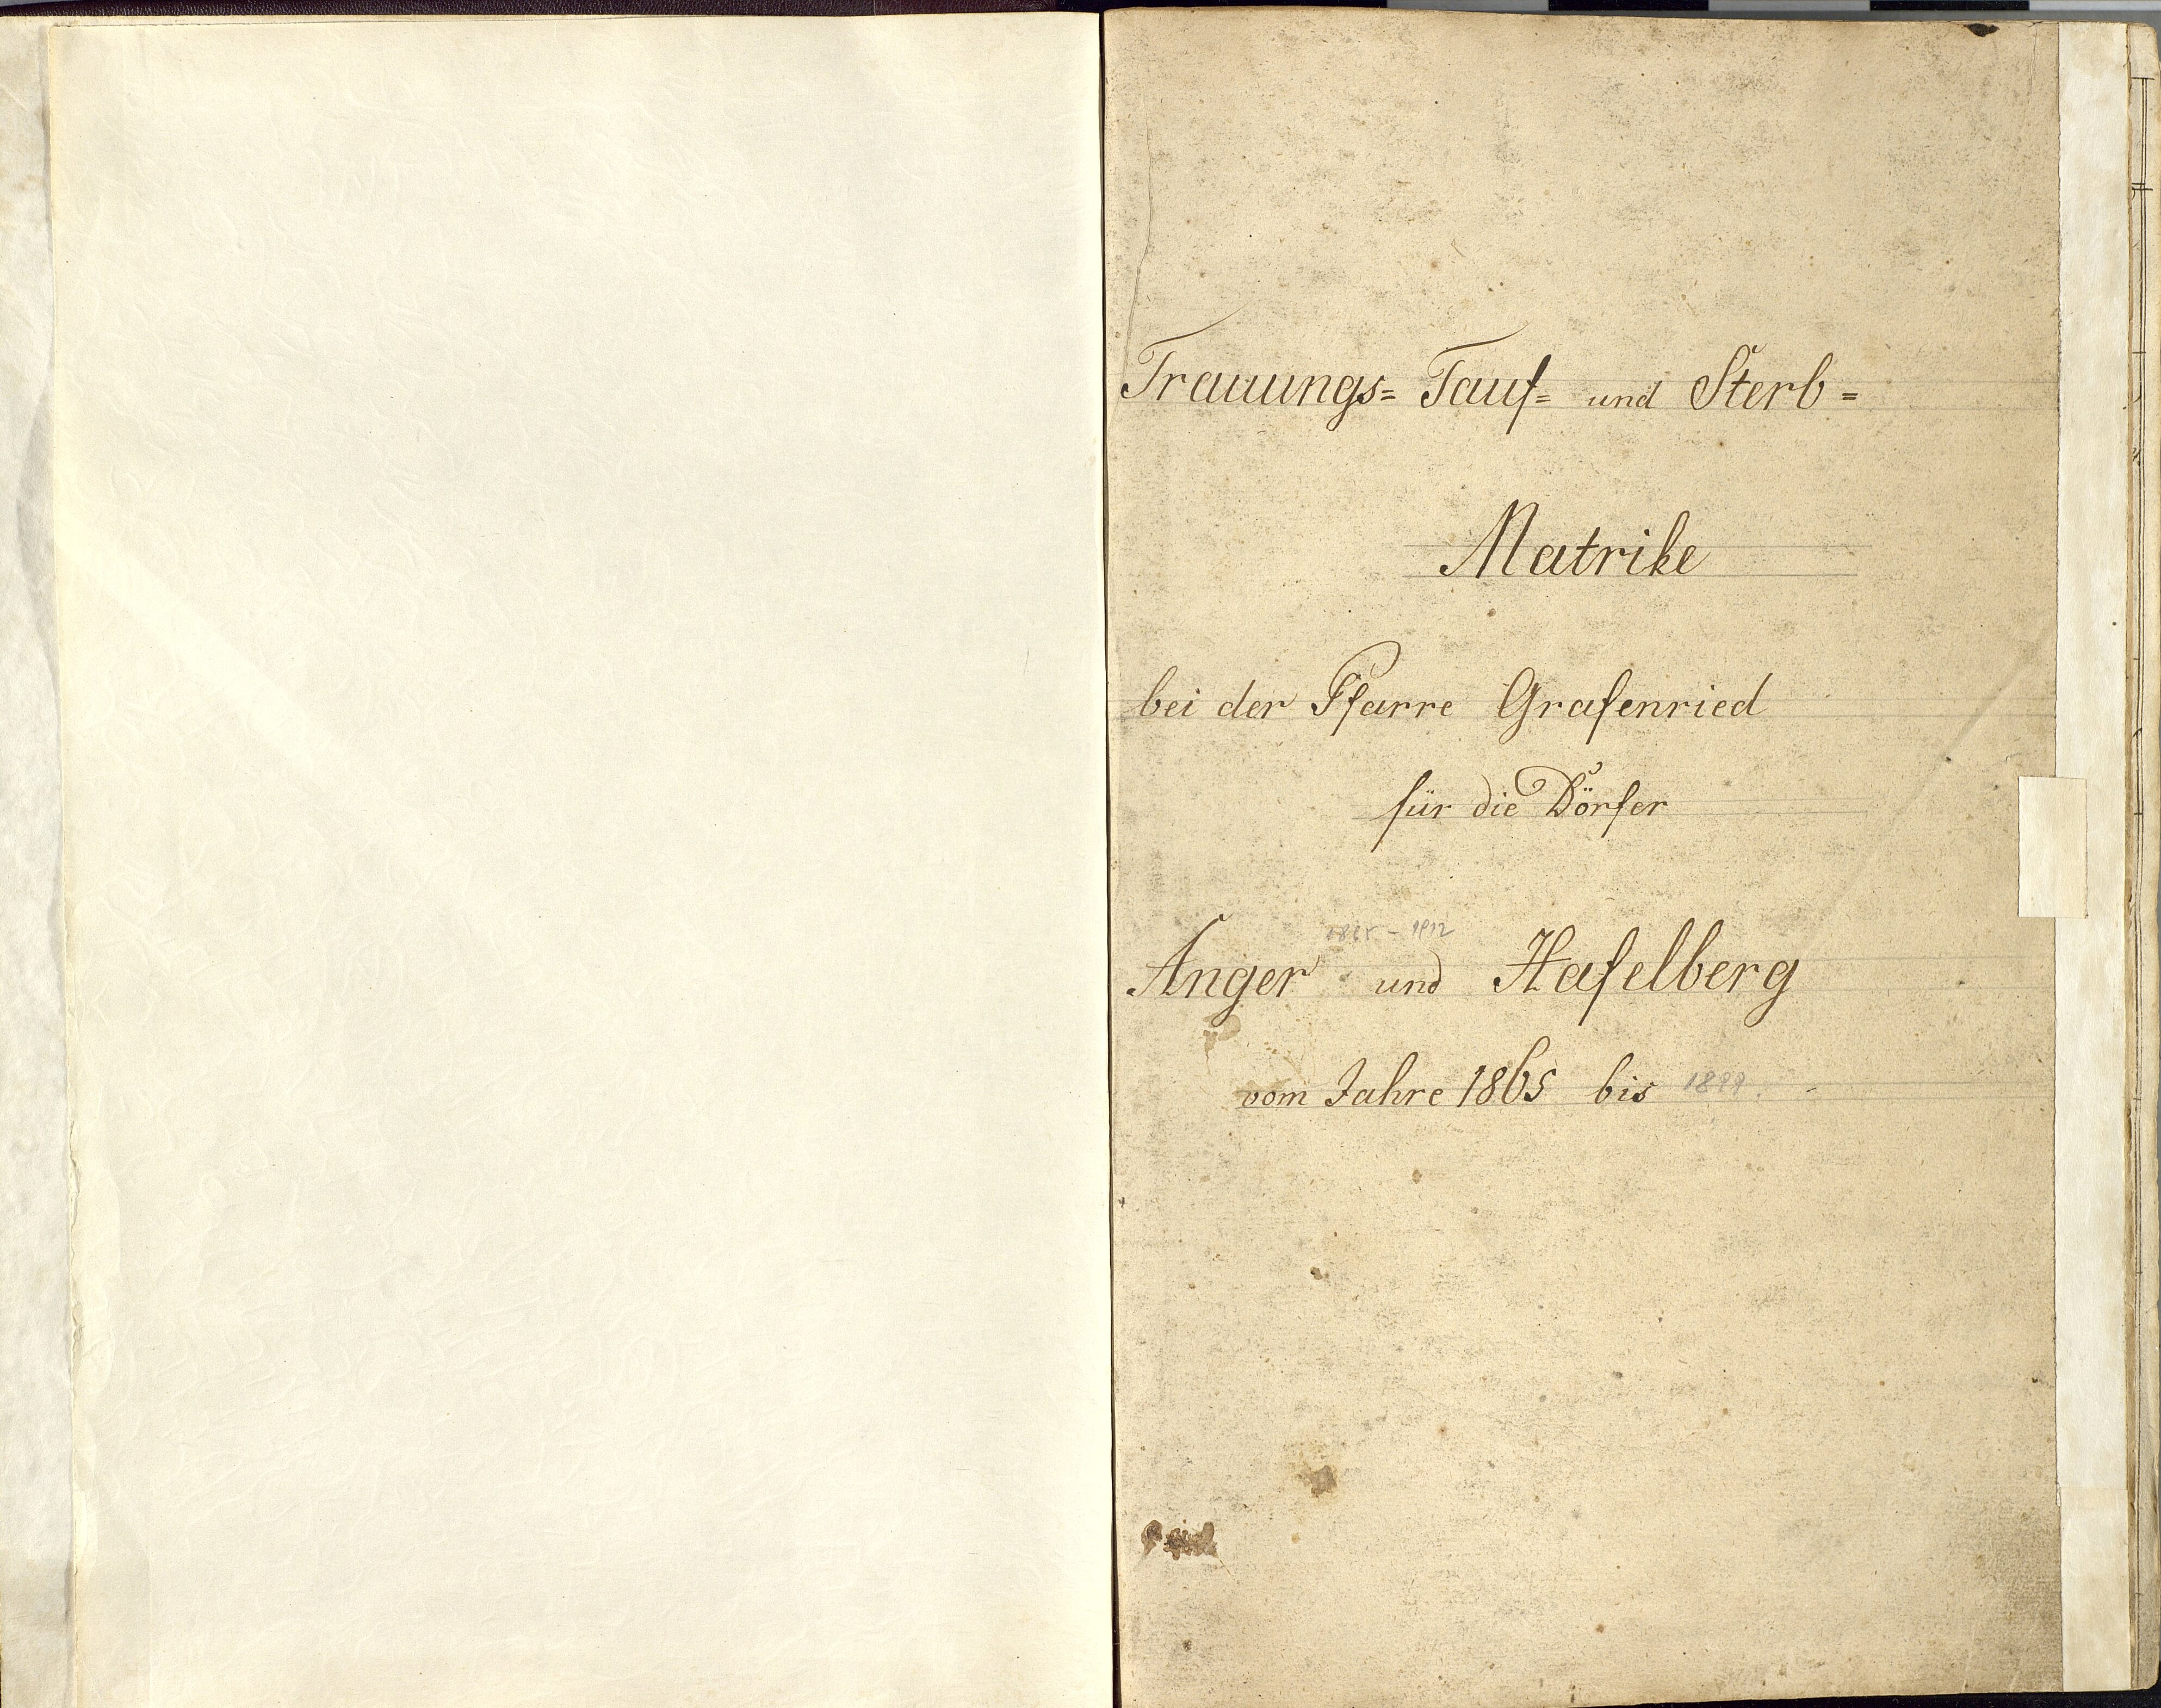 Trauungs= Tauf= und Sterb=
Matrike
bei der Pfarre Grafenried
für die Dörfer
- 1912
Anger und Haselberg
vom Jahre 1865 bis 1899.